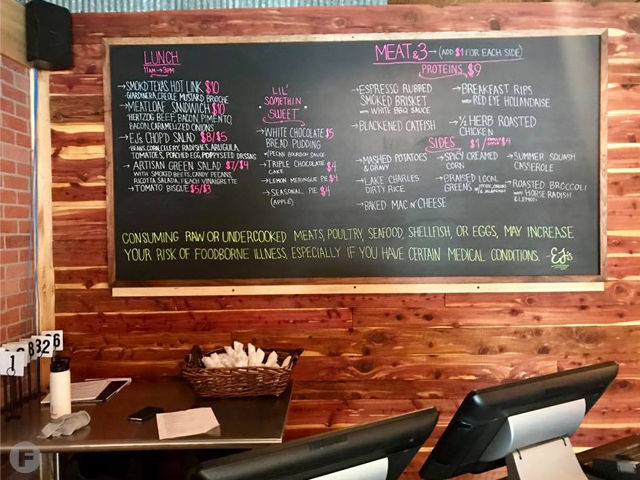 LUNCH
11AM → 3PM
→ SMOK'D TEXAS HOT LINK $10
GIARDINERA, CREOLE MUSTARD, BRIOCHE
→ MEATLOAF SANDWICH $10
HERTZOG BEEF, BACON, PIMENTO,
BACON, CARAMELIZED ONIONS
→ EJ's CHOP'D SALAD $8/$5
BEANS, CORN, CELERY, RADISHES, ARUGULA,
TOMATOES, POACHED EGG, POPPYSEED DRSSNG
→ ARTISAN GREEN SALAD $7/$4
WITH SMOKED BEETS, CANDY PECANS,
RICOTTA SALADA, PEACH VINAIGRETTE
→ TOMATO BISQUE $5/$3
LIL'
SOMETHIN
SWEET
→ WHITE CHOCOLATE $5
BREAD PUDDING
w/ PECAN BOURBON SAUCE
→ TRIPLE CHOCOLATE $4
CAKE
→ LEMON MERINGUE PIE $4
→ SEASONAL PIE $4
(APPLE)
MEAT & 3 → (ADD $1 FOR EACH SIDE)
PROTEINS $9
→ ESPRESSO RUBBED
SMOKED BRISKET
WITH WHITE BBQ SAUCE
→ BLACKENED CATFISH
→ BREAKFAST RIBS
WITH RED EYE HOLLANDAISE
→ ½ HERB ROASTED
CHICKEN
SIDES $1 / $4
→ MASHED POTATOES
& GRAVY
→ LAKE CHARLES
DIRTY RICE
→ BAKED MAC N' CHEESE
→ SPICY CREAMED
CORN
→ BRAISED LOCAL
GREENS
→ SUMMER SQUASH
CASSEROLE
→ ROASTED BROCCOLI
WITH HORSERADISH
& LEMON
CONSUMING RAW OR UNDERCOOKED MEATS, POULTRY, SEAFOOD, SHELLFISH, OR EGGS, MAY INCREASE
YOUR RISK OF FOODBORNE ILLNESS, ESPECIALLY IF YOU HAVE CERTAIN MEDICAL CONDITIONS. EJs
1
8
32
6
F